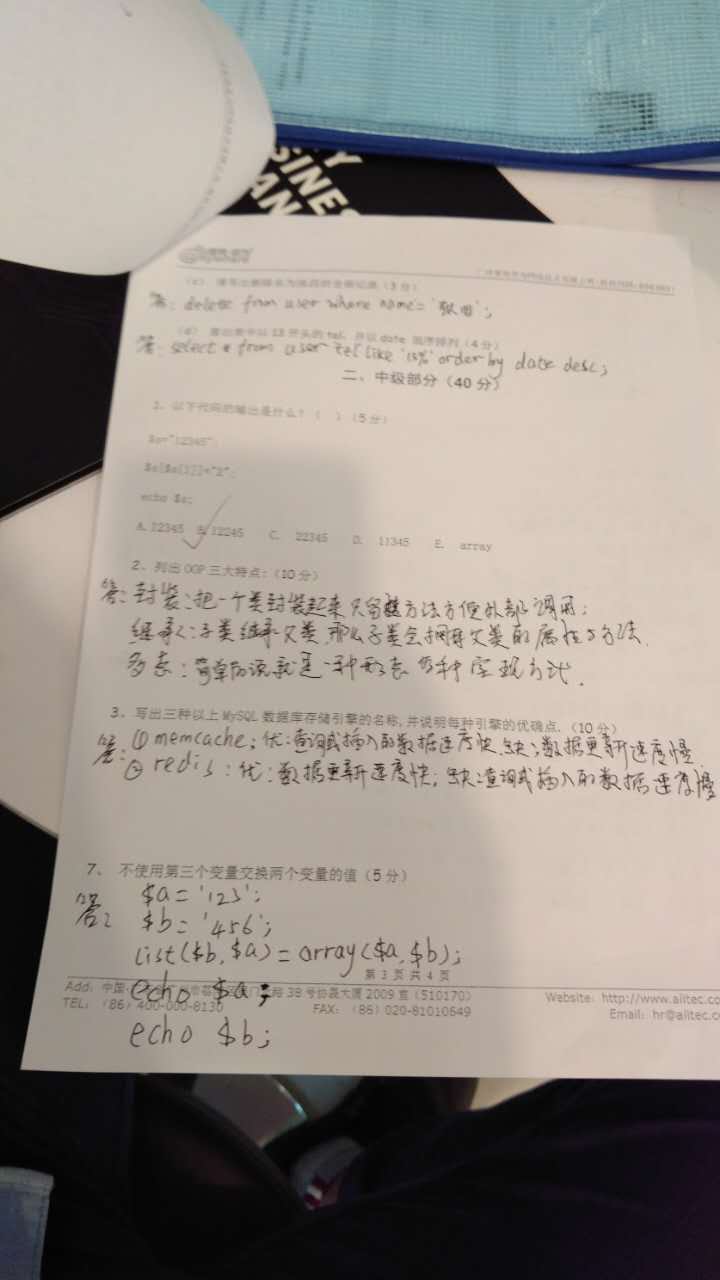 SINES
AN
(c) 请写出删除名为张四的全部记录（3 分）
答: delete from user where name='张四';
(d) 查出表中以 13 开头的 tel, 并以 date 降序排列（4 分）
答: select * from user tel like '13%' order by date desc;
二、中级部分（40 分）
1、以下代码的输出是什么？（ ）（5 分）
$a="12345";
$a[$a[1]]="2";
echo $a;
A. 12345 B. 12245 C. 22345 D. 11345 E. array
2、列出 OOP 三大特点：（10 分）
答: 封装：把一个类封装起来只留方法方便外部调用；
继承：子类继承父类，那么子类会拥有父类的属性与方法.
多态：简单的说就是一种形态多种实现方式.
3、写出三种以上 MySQL 数据库存储引擎的名称, 并说明每种引擎的优确点.（10 分）
答: ① memcache; 优: 查询或插入的数据速度快, 缺: 数据更新速度慢.
② redis: 优: 数据更新速度快; 缺: 查询或插入的数据速度慢
7、 不使用第三个变量交换两个变量的值（5 分）
答: $a = '123';
$b = '456';
list($b, $a) = array($a, $b);
第 3 页 共 4 页
echo $a;
Add: 中国 路 38 号 大厦 2009 室（510170） Website: http://www.ailtec.co
TEL: （86）400-000-8130 FAX: （86）020-81010649 Email: hr@ailtec.co
echo $b;